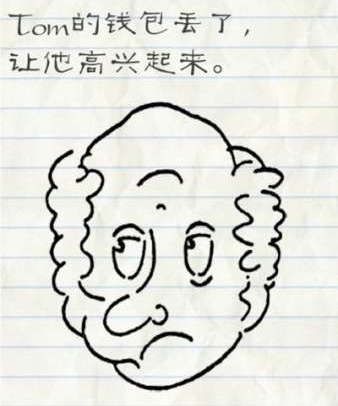 Tom的钱包丢了,
让他高兴起来。